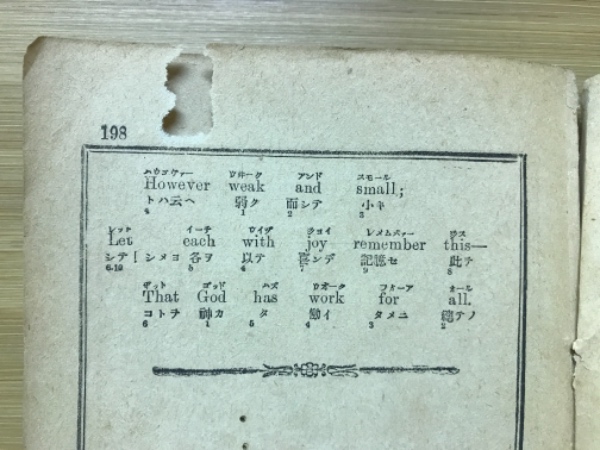 198
ハウエヴァー ウヰーク アンド スモール
However weak and small;
トハ云ヘ 弱ク 而シテ 小キ
4 1 2 3
レット イーチ ウイヅ ジョイ レメムバァー ヅス
Let each with joy remember this—
シテ 各ヲ 以テ 喜ンデ 記憶セ 此ヲ
6.10 5 4 7 9 8
ザット ゴッド ハズ ウオーク フォーア オール
That God has work for all.
コトヲ 神カ タ 働イ タメニ 總テノ
6 1 5 4 3 2